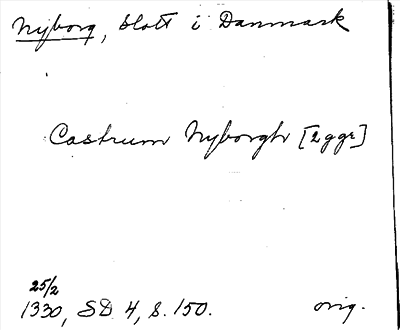 Nyborg, slott i Danmark
Castrum Nyborgh [2 ggr]
25/2
1330, SD 4, s. 150. orig.